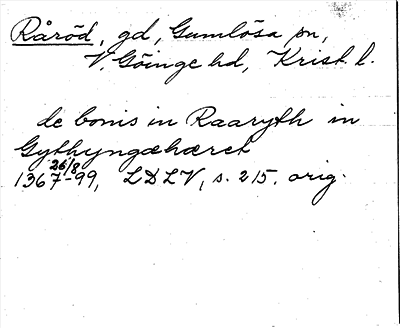 Råröd, gd, Gumlösa pn,
V. Göinge hd, Krist. l.
de bonis in Raaryth in
Gythyngæhæret
1367 26/8 -99, LDLV, s. 215. orig.